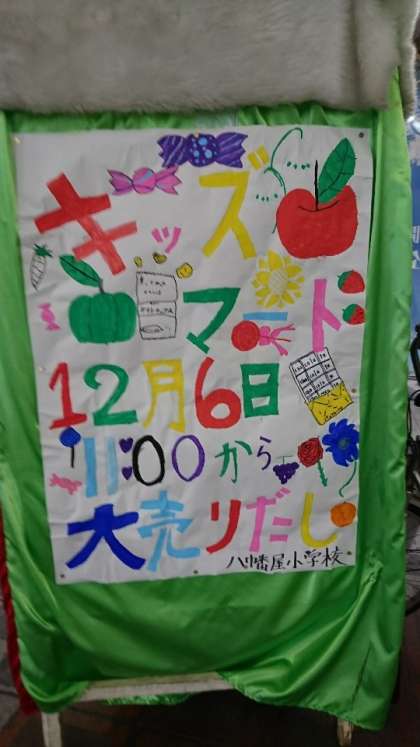 キッズ
マード
12月6日
11:00から
大売りだし
八幡屋小学校